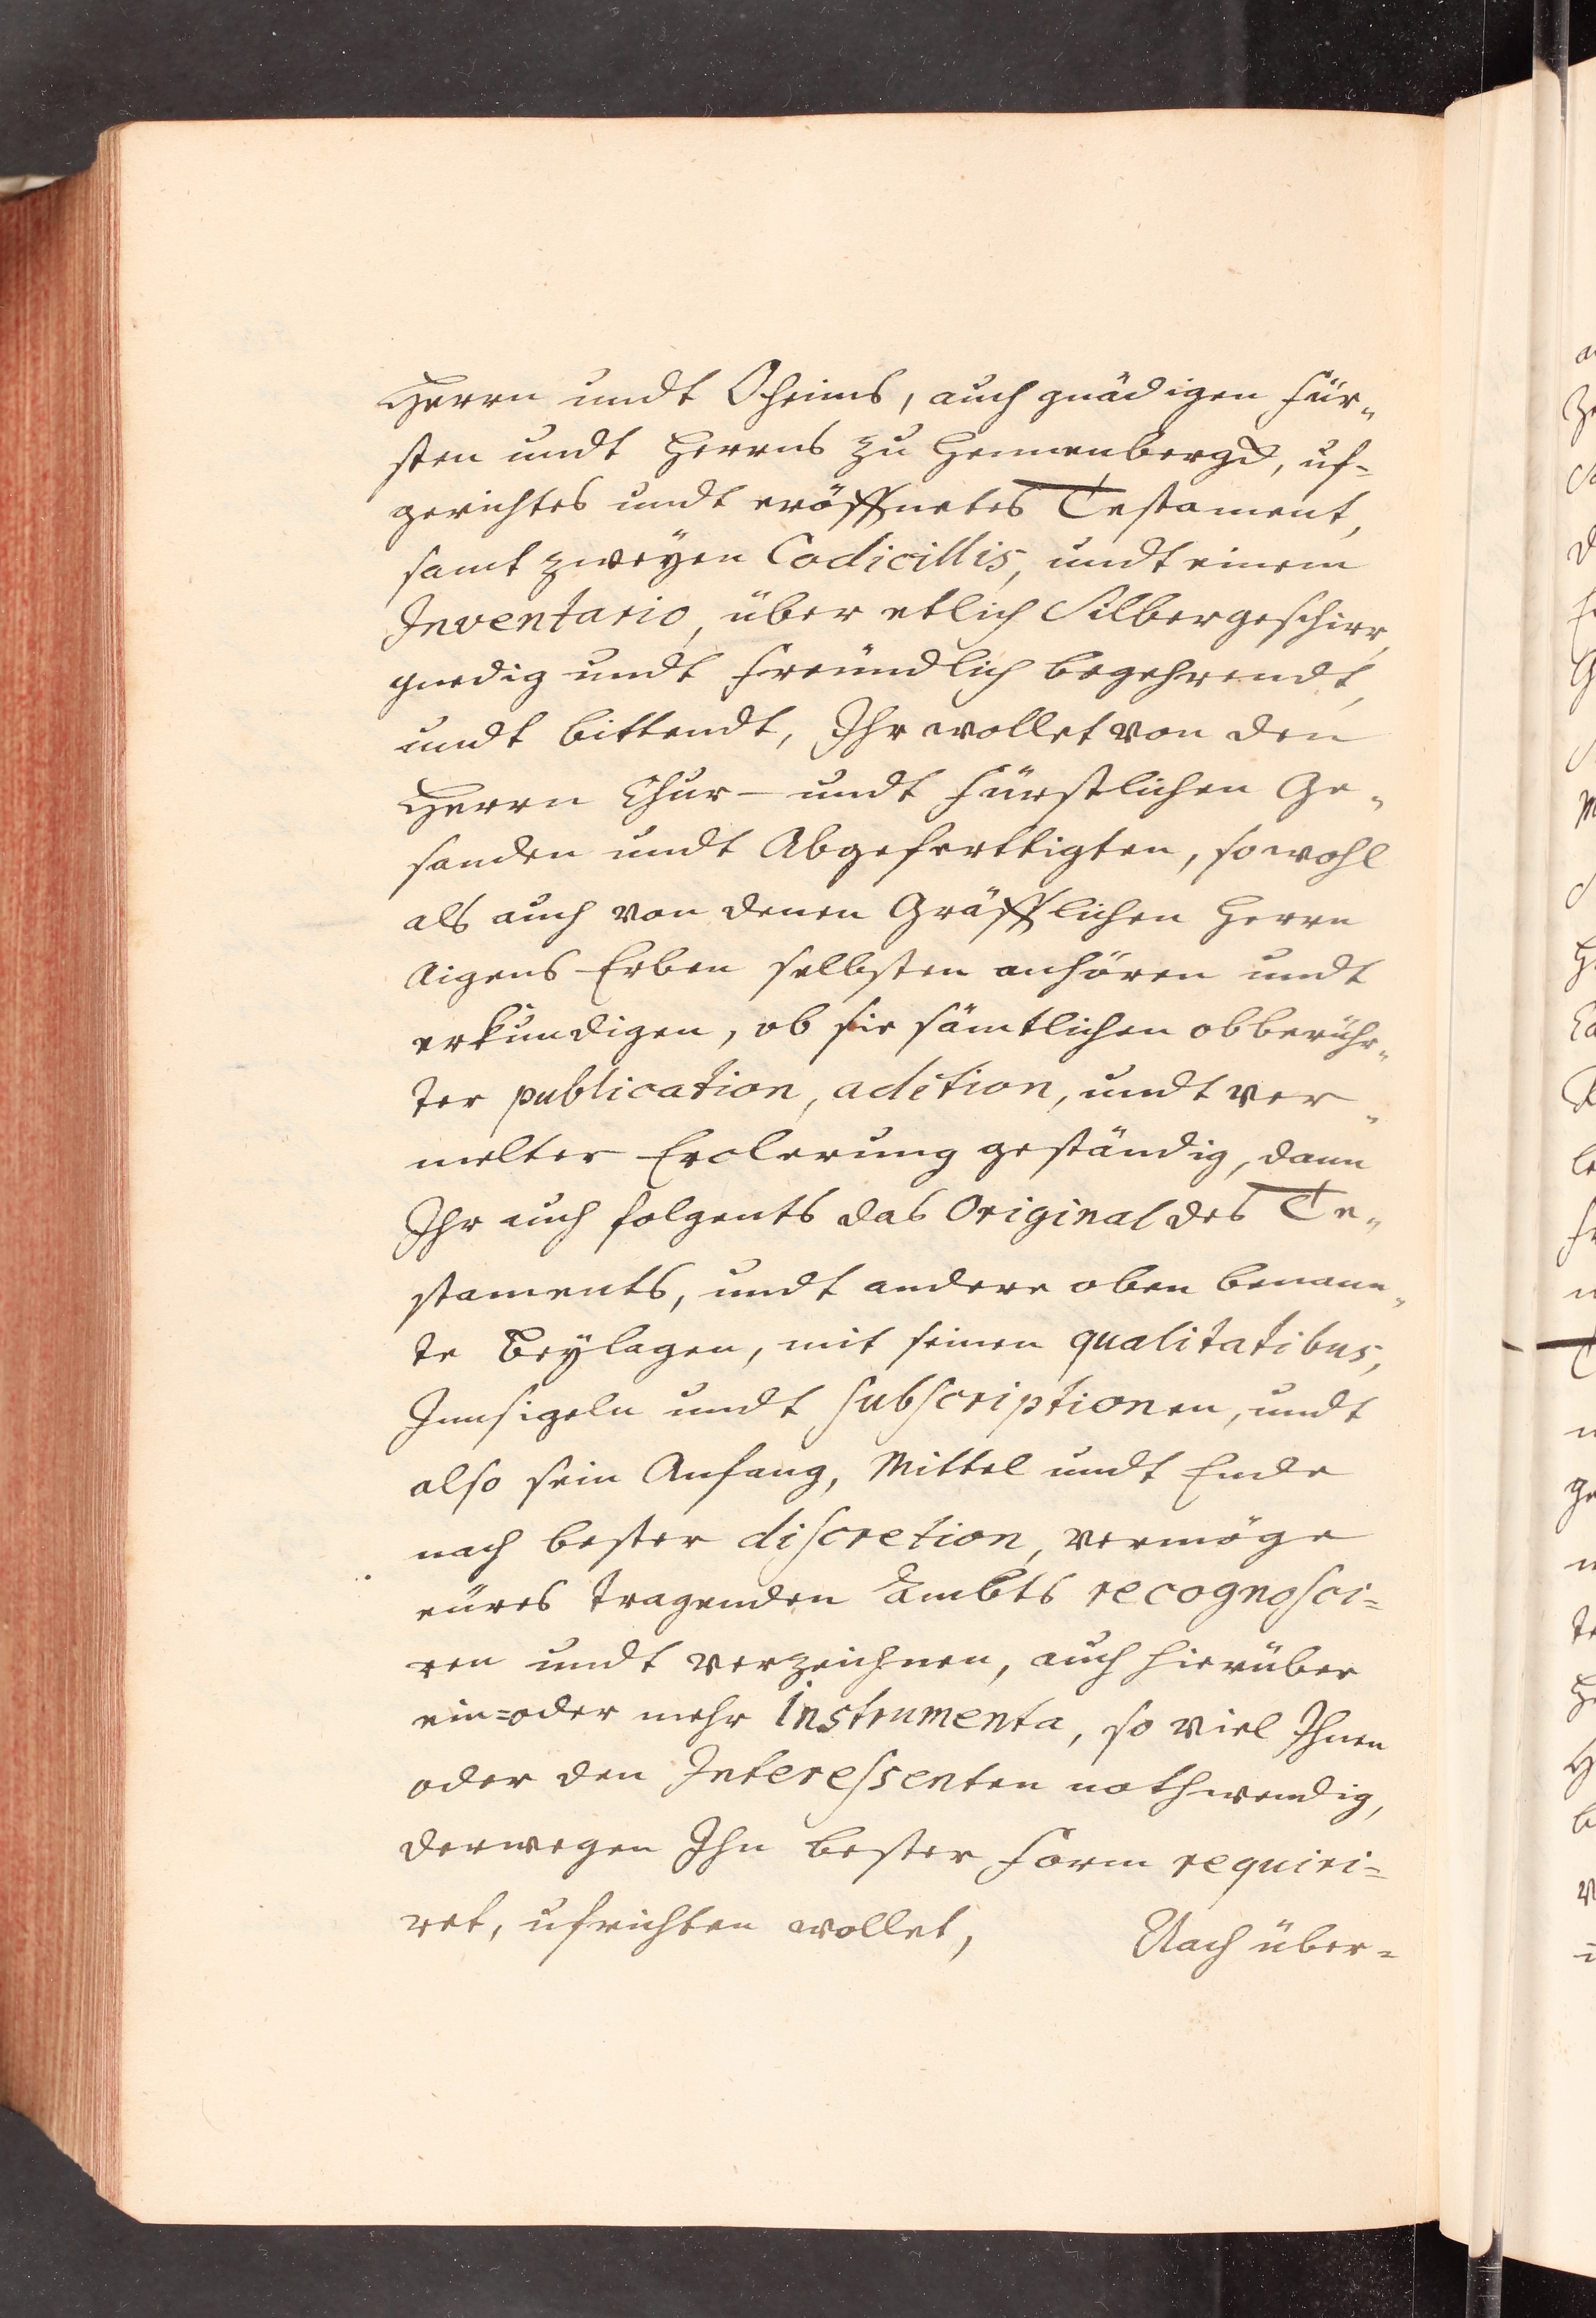 Herrn undt Oheims, auch gnädigen Für„
sten undt Herrns zu Hennenbergd, uf-
gerichtes undt eröffnetes Testament,
samt zweÿen Codicillis, undt einem
Inventario, über etlich Silbergeschirr,
gnedig undt freündlich begehrendt,
undt bittendt, Ihr wollet von den
Herrn Chur- undt Fürstlichen Ge„
sanden undt Abgeferttigten, sowohl
als auch von denen Gräfflichen Herrn
Aigens-Erben selbsten anhören undt
erkundigen, ob sie sämtlichen obberühr„
ter publication, adition, undt ver„
melter Erclerung geständig, dann
Ihr auch folgents das Original des Te„
staments, undt andere oben benann„
te Beÿlagen, mit seinen qualitatibus,
Innsigeln undt subscriptionen, undt
also sein Anfang, Mittel undt Ende
nach bester discretion, vermöge
eüres tragenden Ambts recognosci=
ren undt verzeichnen, auch hierüber
ein=oder mehr Instrumenta, so viel Ihnen
oder den Interessenten nothwendig,
derwegen Ihn bester Form requiri=
ret, ufrichten wollet,
Nach über=